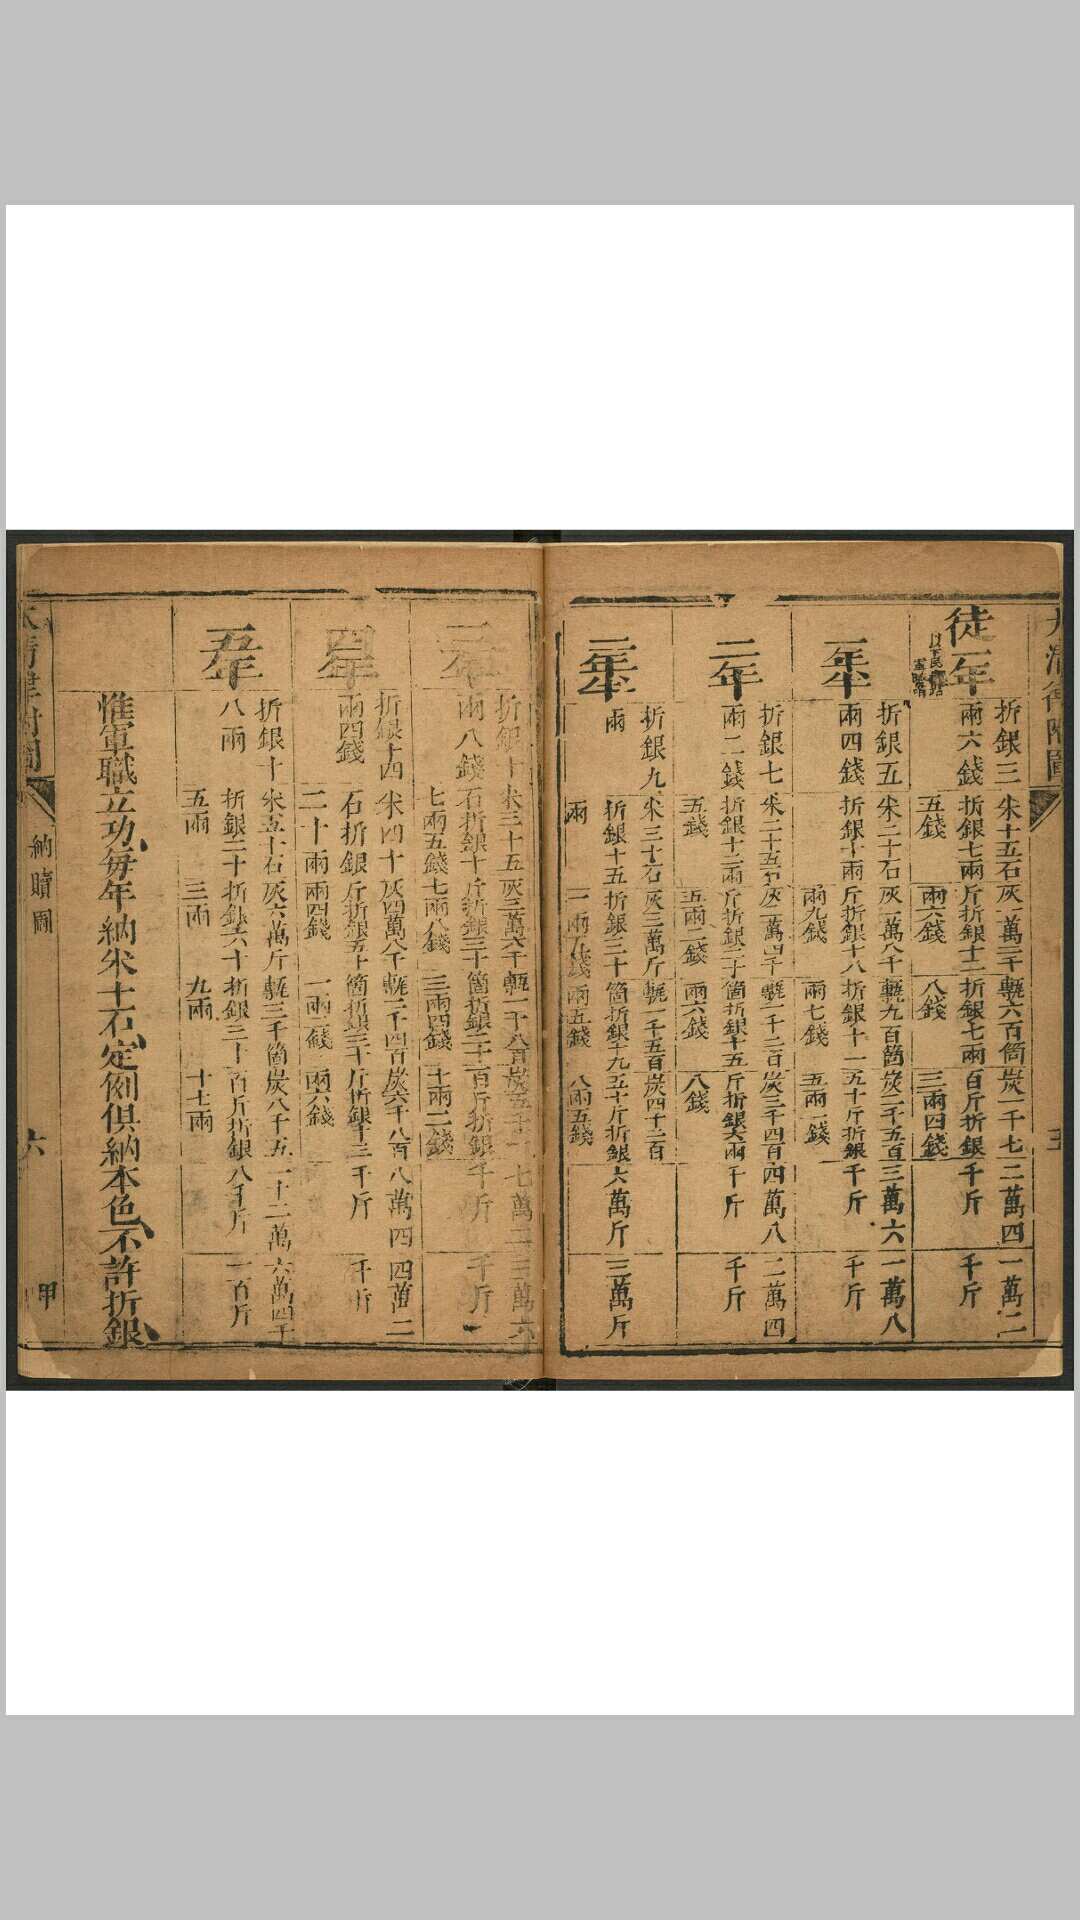 大清律附圖
五
徒一年
折銀三兩六錢
米十五石折銀七兩五錢
灰一萬二千斤折銀十二兩六錢
甎六百箇折銀七兩八錢
炭一千七百斤折銀三兩四錢
二萬四千斤
一萬二千斤
一年半
折銀五兩四錢
米二十石折銀十兩
灰一萬八千斤折銀十八兩九錢
甎九百箇折銀十一兩七錢
炭二千五百五十斤折銀五兩一錢
三萬六千斤
一萬八千斤
二年
折銀七兩二錢
米二十五石折銀十二兩五錢
灰二萬四千斤折銀二十五兩二錢
甎一千二百箇折銀十五兩六錢
炭三千四百斤折銀六兩八錢
四萬八千斤
二萬四千斤
二年半
折銀九兩
米三十石折銀十五兩
灰三萬斤折銀三十一兩九錢
甎一千五百箇折銀十九兩五錢
炭四千二百五十斤折銀八兩五錢
六萬斤
三萬斤
三年
折銀十兩八錢
米三十五石折銀十七兩五錢
灰三萬六千斤折銀三十七兩八錢
甎一千八百箇折銀二十三兩四錢
炭五千一百斤折銀十兩二錢
七萬二千斤
三萬六千斤
四年
折銀十四兩四錢
米四十石折銀二十兩
灰四萬八千斤折銀五十兩四錢
甎二千四百箇折銀三十一兩二錢
炭六千八百斤折銀十三兩六錢
八萬四千斤
四萬二千斤
五年
折銀十八兩
米五十石折銀二十五兩
灰六萬斤折銀六十三兩
甎三千箇折銀三十九兩
炭八千五百斤折銀十七兩
一十二萬八千斤
六萬四千一百斤
惟軍職立功、每年納米十石、定例俱納本色、不許折銀、
大清律附圖
納贖圖
六
甲